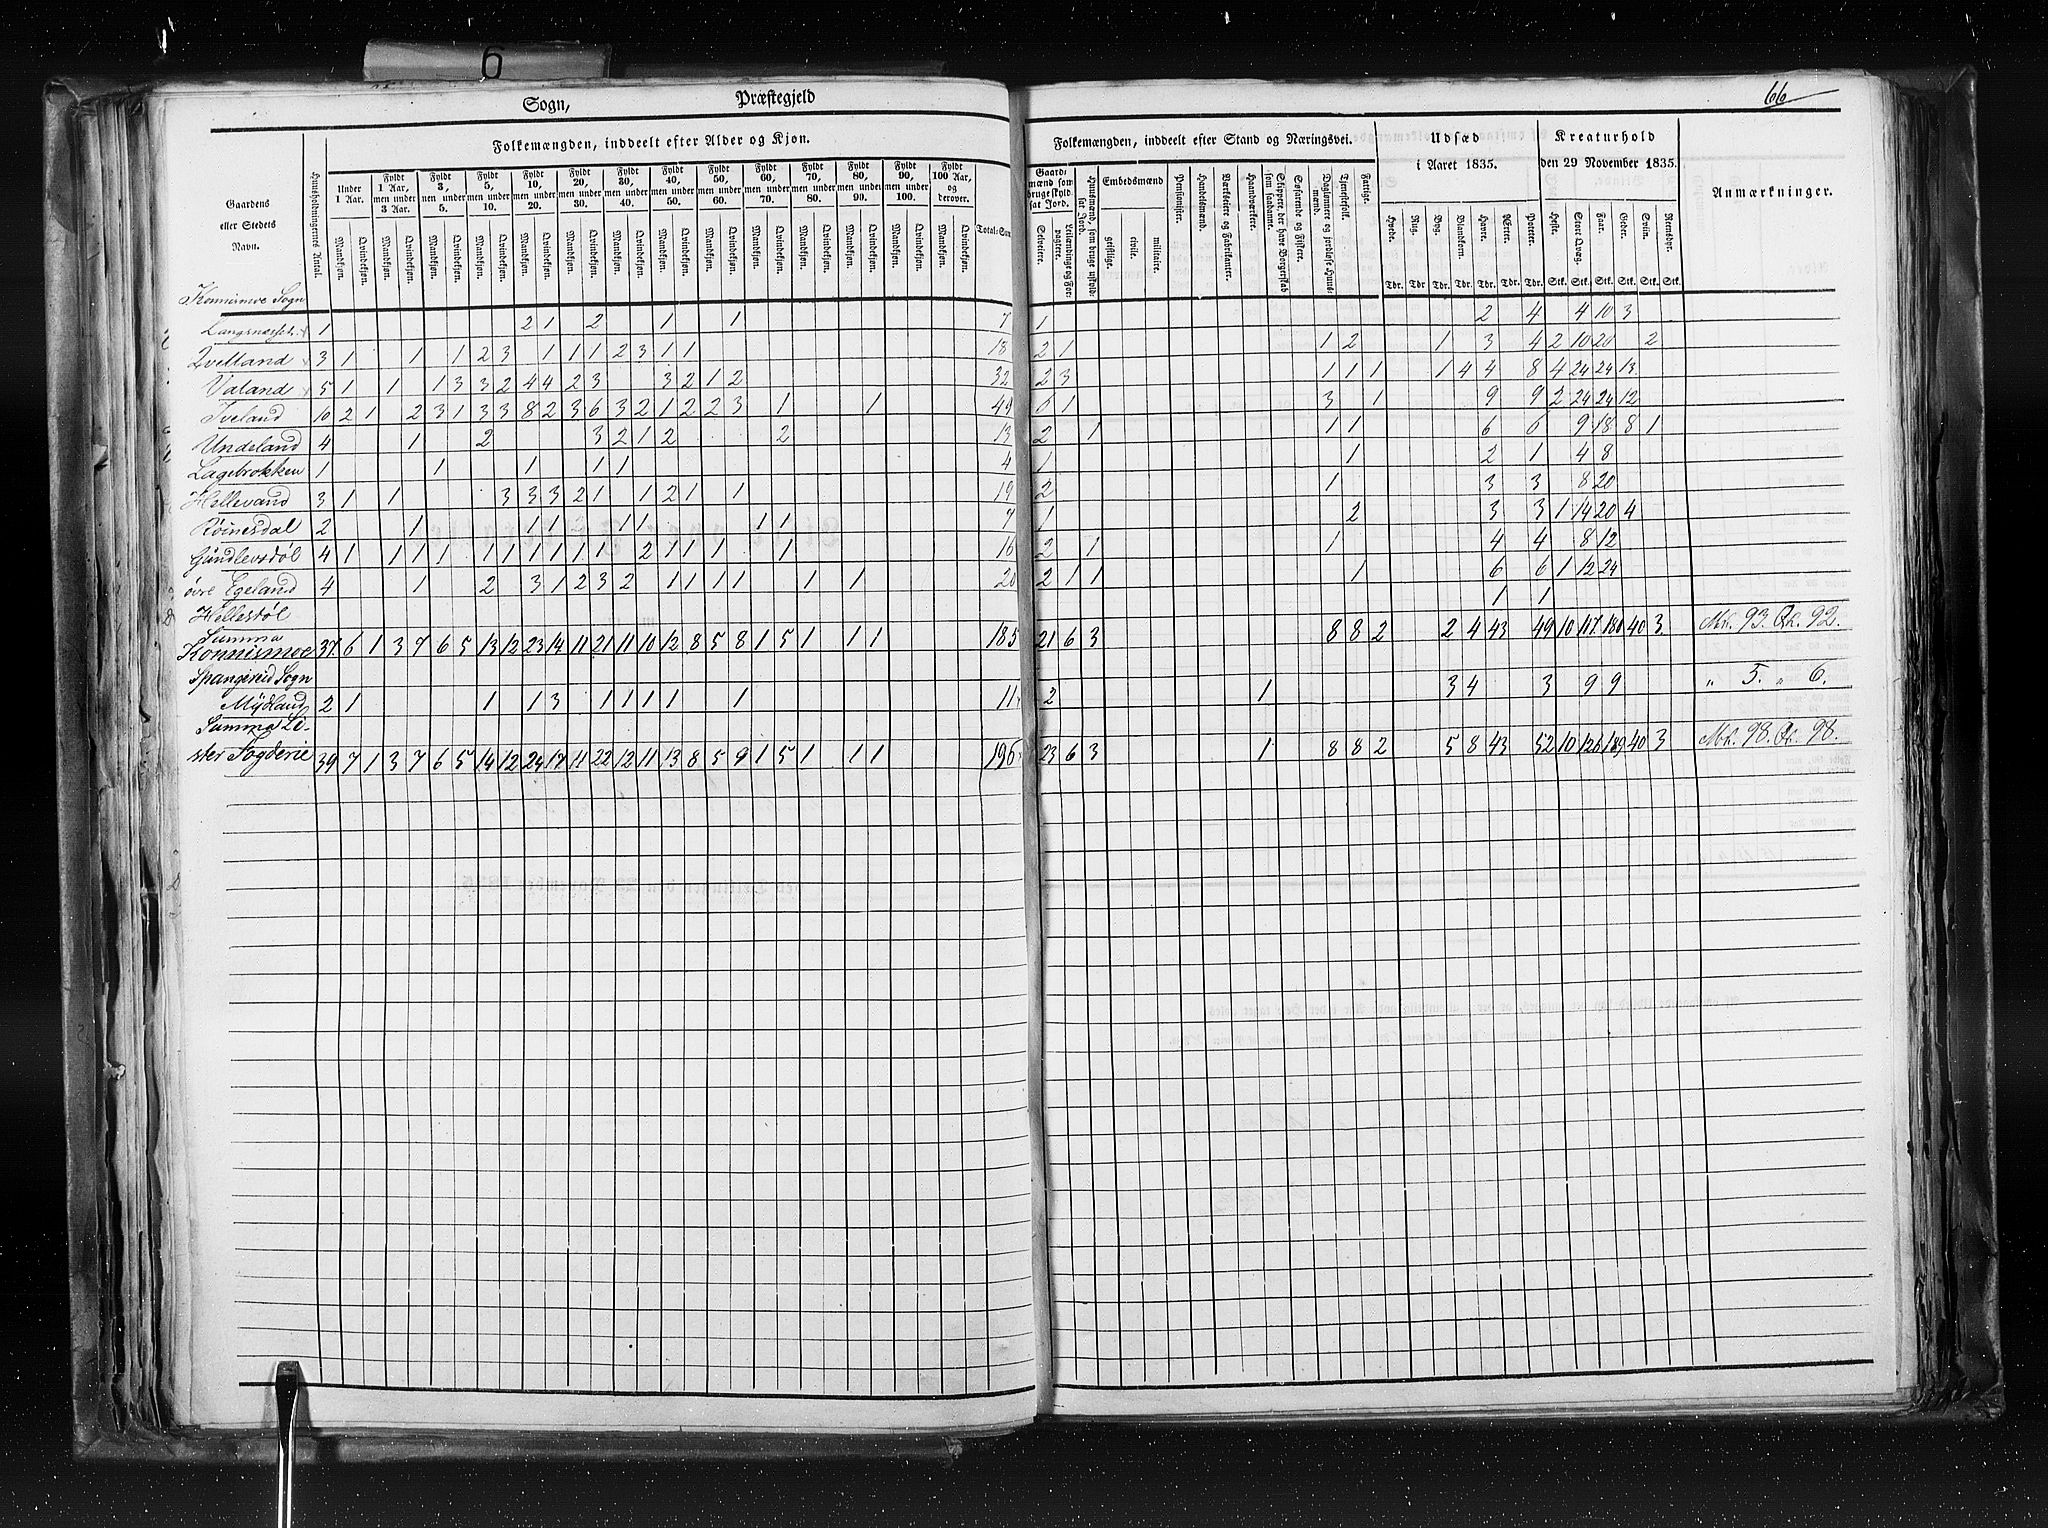 6
Sogn, Præstegjeld
66
Gaardens eller Stedets Navn.
Huusholdningernes Antal.
Folkemængden, inddeelt efter Alder og Kjøn.
Under 1 Aar.
Fyldt 1 Aar, men under 3 Aar.
Fyldt 3, men under 5.
Fyldt 5, men under 10.
Fyldt 10, men under 20.
Fyldt 20, men under 30.
Fyldt 30, men under 40.
Fyldt 40, men under 50.
Fyldt 50, men under 60.
Fyldt 60, men under 70.
Fyldt 70, men under 80.
Fyldt 80, men under 90.
Fyldt 90, men under 100.
Fyldt 100 Aar, og derover.
Mandkjøn. Qvindekjøn.
Total-Sum
Folkemængden, inddeelt efter Stand og Næringsvei.
Gaardmænd som bruge skyldsat Jord.
Selveiere.
Leilændinge og Forpagtere.
Huusmænd, som bruge uskyldsat Jord.
Embedsmænd
geistlige.
civile.
militaire.
Pensionister.
Handelsmænd.
Værkseiere og Fabrikanter.
Haandværkere.
Skippere der have Borgerskab som saadanne.
Søfarende og Fiskere.
Daglønnere og jordløse Huusmænd.
Tjenestefolk.
Fattige.
Udsæd i Aaret 1835.
Hvede. Rug. Byg. Blandkorn. Havre. Erter. Poteter.
Tdr. Tdr Tdr. Tdr. Tdr. Tdr. Tdr.
Kreaturhold den 29 November 1835.
Heste. Stort Qvæg. Faar. Geder. Sviin. Rensdyr.
Stk. Stk. Stk. Stk. Stk. Stk.
Anmærkninger.
Konnismoe Sogn
Langnæsset 1 2 1 2 1 1 7 1 2 4 4 10 3
Qvelland 3 1 1 1 2 3 1 1 1 2 3 1 1 18 2 1 1 2 1 3 4 2 10 20 2
Valand 5 1 1 1 3 3 2 4 4 2 3 3 2 1 2 32 2 3 1 1 1 1 4 4 8 4 24 24 13
Iveland 10 2 1 2 3 1 3 3 8 2 3 6 3 2 1 2 2 3 1 1 49 6 1 3 1 9 9 2 24 24 12
Undeland 4 1 2 3 2 1 2 2 13 2 1 1 1 6 6 9 18 8 1
Lagebrokken 1 1 1 1 1 4 1 1 2 1 4 8
Hellevand 3 1 1 3 3 3 2 1 1 2 1 1 19 2 1 3 3 8 20
Røinesdal 2 1 1 1 1 1 1 1 7 1 2 3 3 1 14 20 4
Gundlevsdøl 4 1 1 1 1 1 1 1 1 1 1 2 1 1 1 1 16 2 1 1 4 4 8 12
øvre Egeland 4 1 2 3 1 2 3 2 1 1 1 1 1 1 20 2 1 1 1 6 6 1 12 24
Hellesdøl 1 1
Summa
Konnismoe 37 6 1 3 7 6 5 13 12 23 14 11 21 11 10 12 8 5 8 1 5 1 1 1 185 21 6 3 8 8 2 2 4 43 49 10 117 180 40 3 Mk. 93. Qk. 92.
Spangereid Sogn
Mydland 2 1 1 1 3 1 1 1 1 1 11 2 1 3 4 3 9 9 " 5. " 6.
Summa Li-
ster Fogderie 39 7 1 3 7 6 5 14 12 24 17 11 22 12 11 13 8 5 9 1 5 1 1 1 196 23 6 3 1 8 8 2 5 8 43 52 10 126 189 40 3 Mk. 98. Qk. 98.